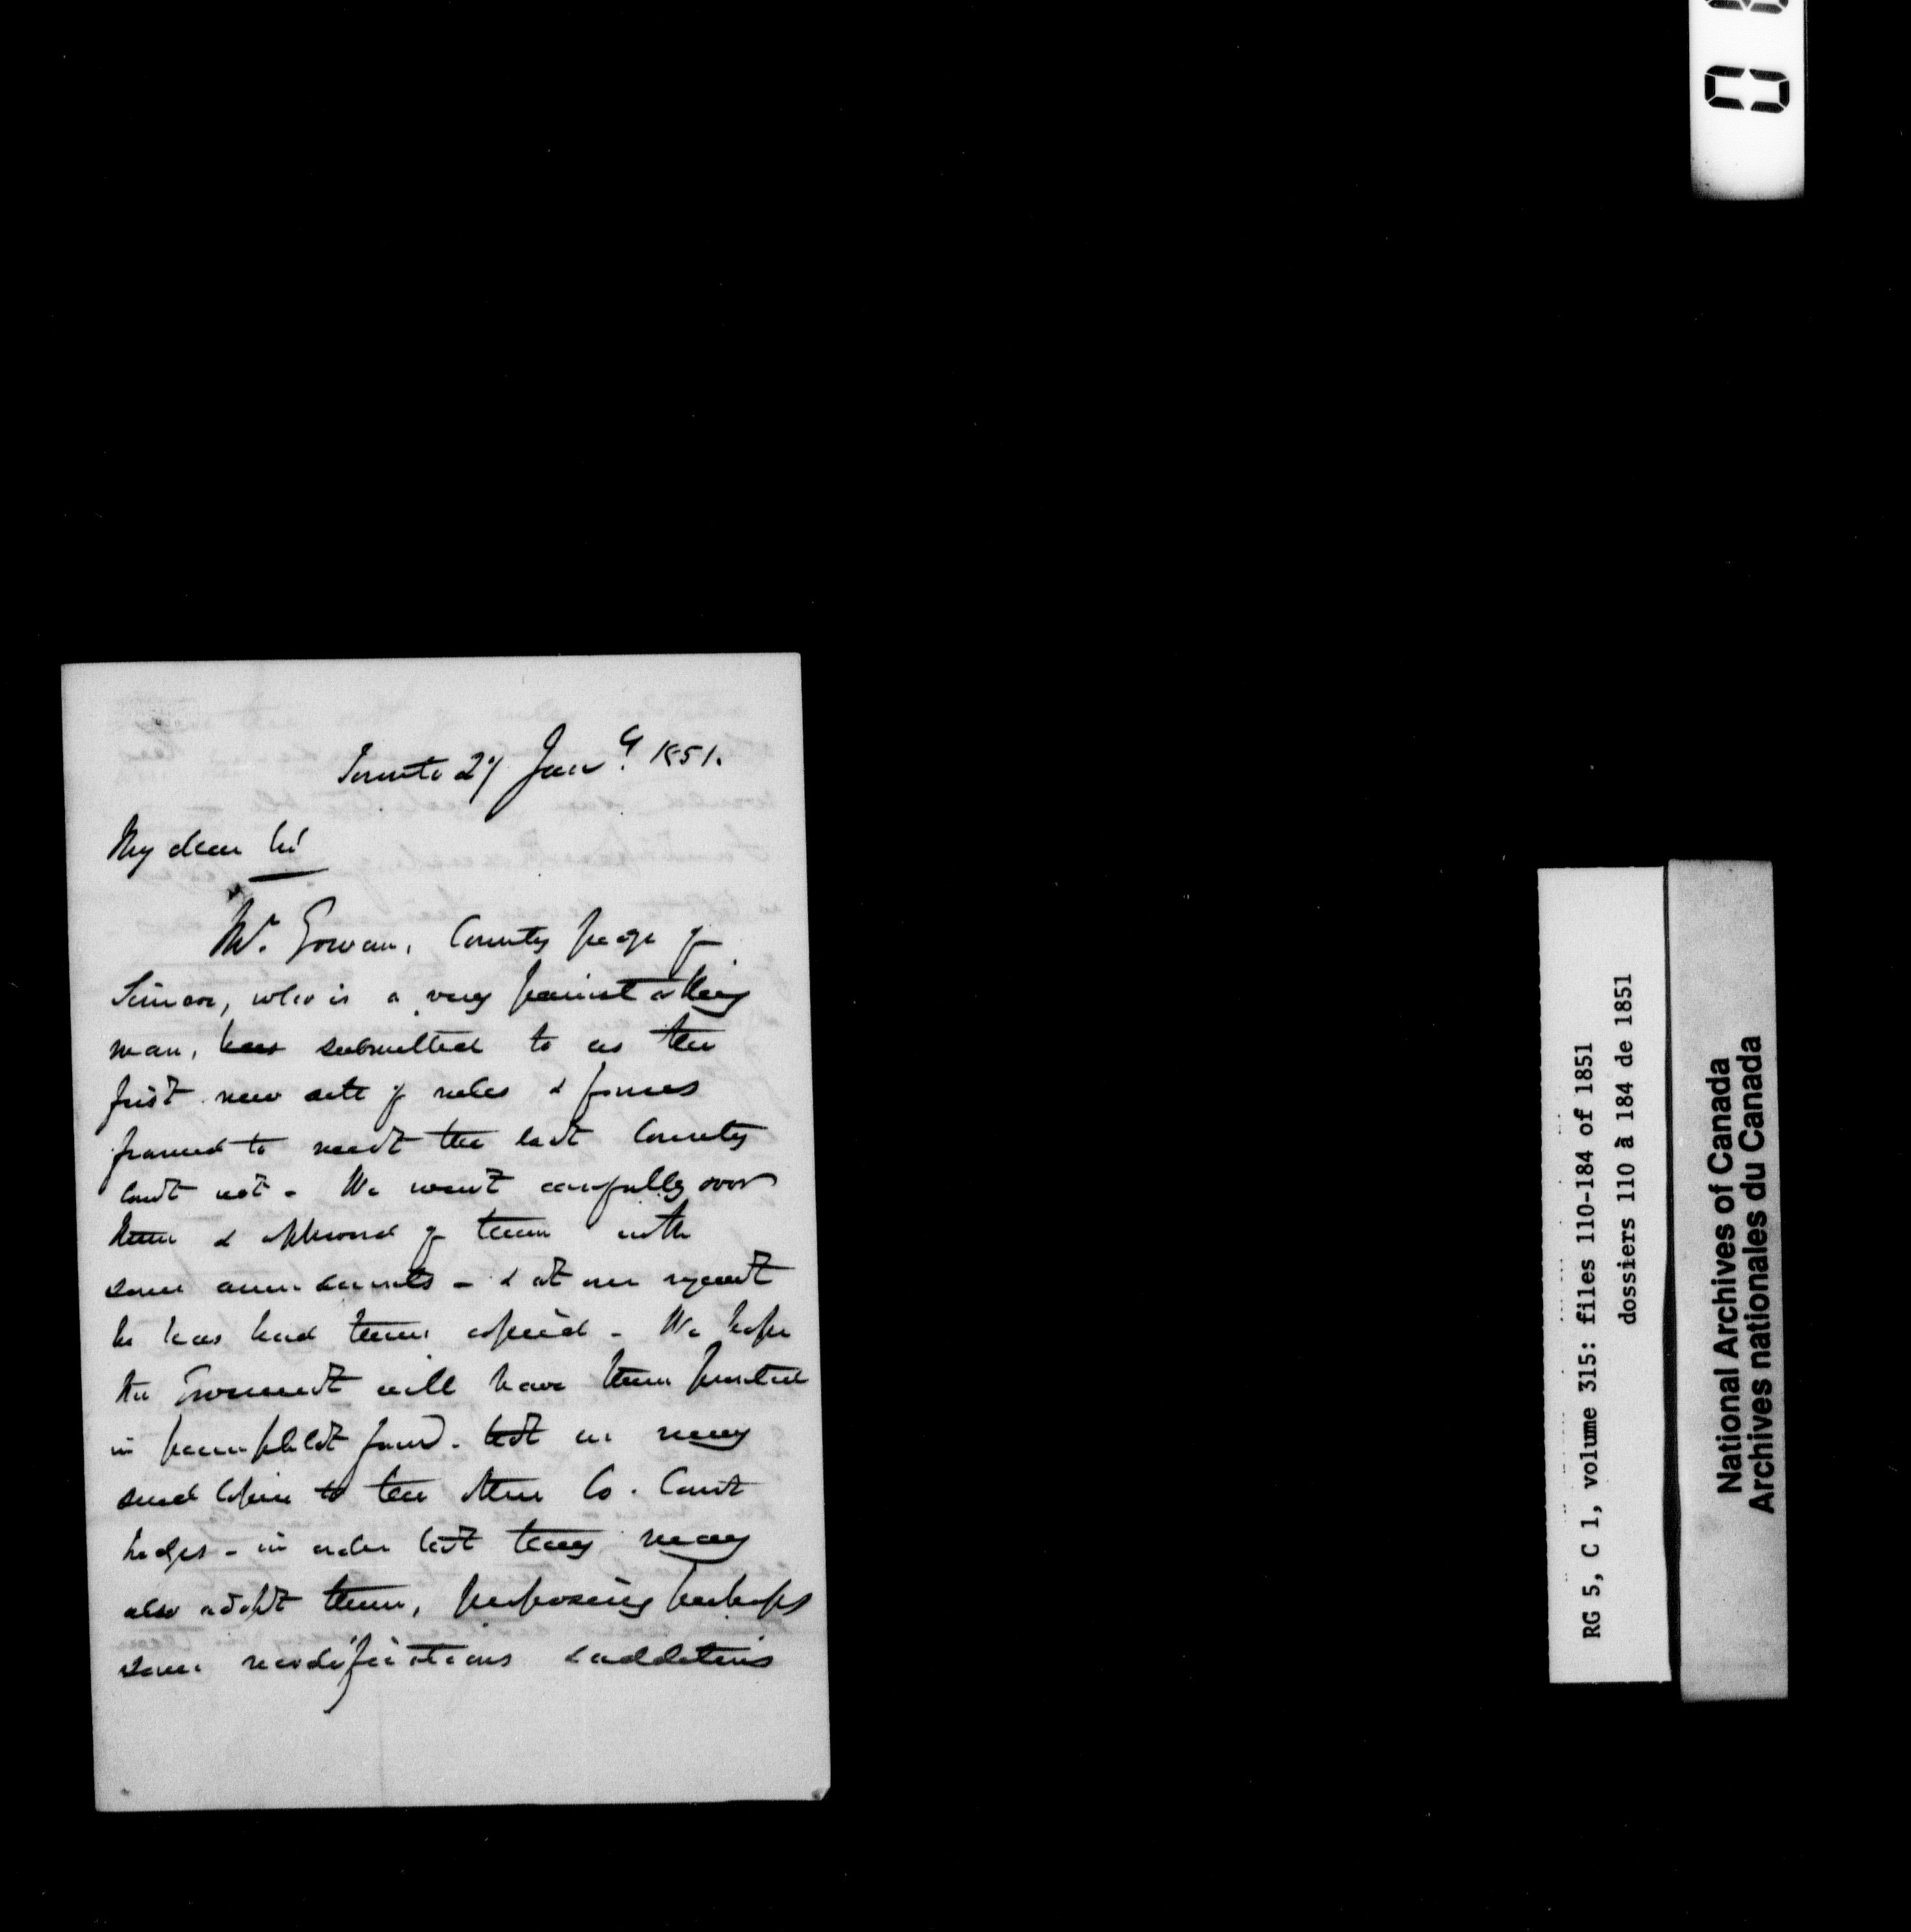 Toronto 27 Jany. 1851.
My dear Sir
Mr. Gowan, County Judge of
Simcoe, who is a very painstaking
man, has submitted to us the
first new sett of rules & forms
framed to meet the last County
Court act - We went carefully over
them & approved of them with
some amendments - & at our request
he has had them copied - We hope
the Governmt will have them printed
in pamphlet form. that we may
send copies to the other Co. Court
Judges - in order that they may
also adopt them, proposing perhaps
some modifications & additions
RG 5, C 1, volume 315: files 110-184 of 1851
dossiers 110 à 184 de 1851
National Archives of Canada
Archives nationales du Canada